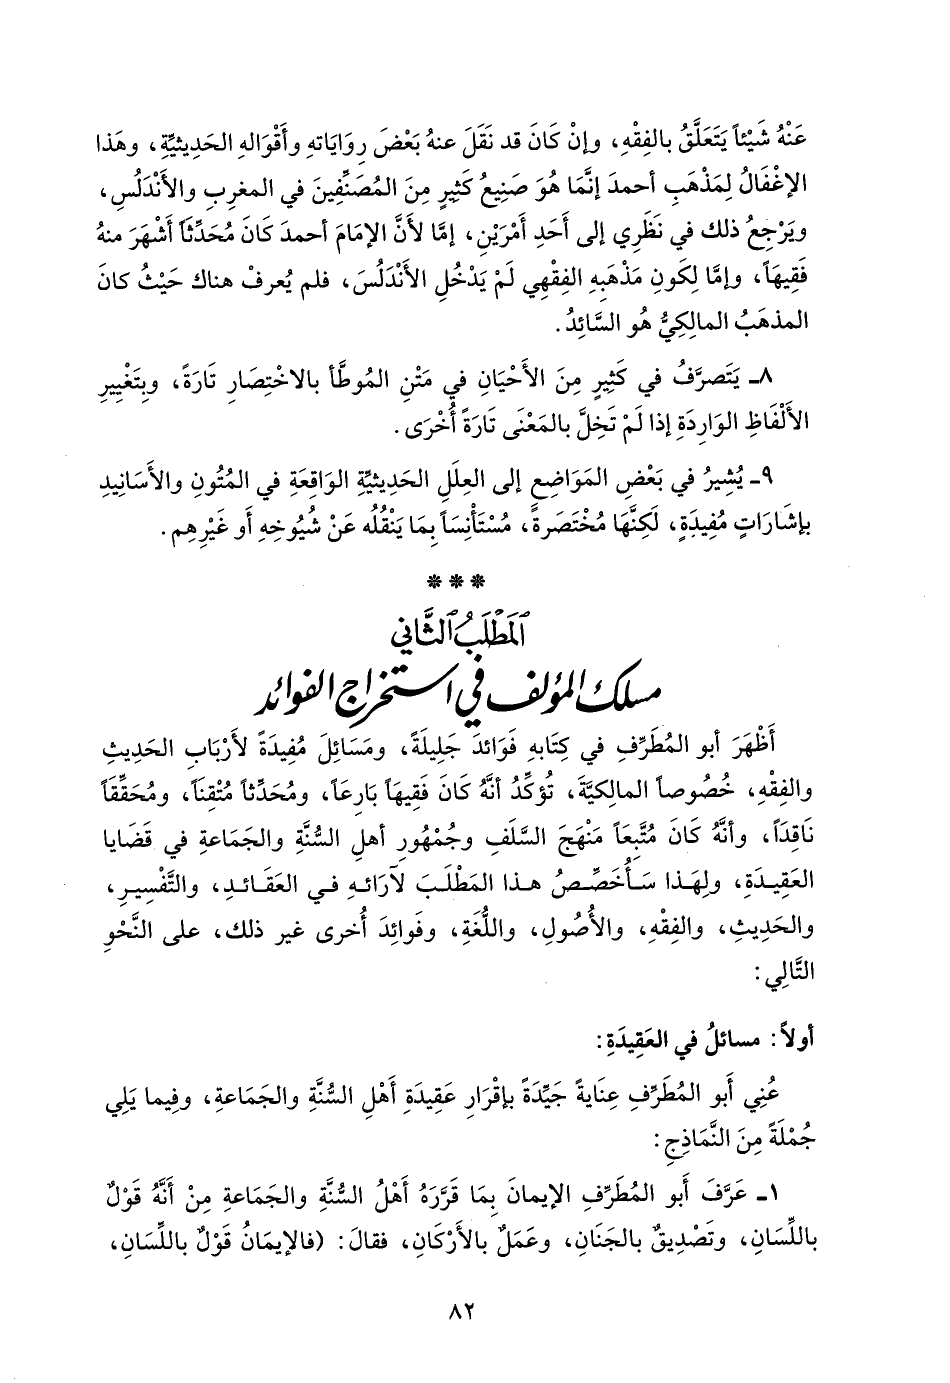 عَنْهُ شَيْئاً يَتَعَلَّقُ بالفِقْهِ، وإنْ كَانَ قد نَقَلَ عنهُ بَعْضَ رِوَايَاتهِ وأَقْوَالهِ الحَدِيثيَّةِ، وهَذا
الإغْفَالُ لِمَذْهَبِ أحمدَ إنَّمَا هُوَ صَنِيعُ كَثِيرٍ مِنَ المُصَنِّفِينَ في المغربِ والأَنْدَلُسِ،
ويَرْجِعُ ذلك في نَظَرِي إلى أَحَدِ أَمْرَيْنِ، إمَّا لأَنَّ الإمَامَ أحمدَ كَانَ مُحَدِّثَاً أَشْهَرَ منهُ
فَقِيهَاً، وإمَّا لِكَونِ مَذْهَبهِ الفِقْهِي لَمْ يَدْخُلِ الأَنْدَلُسَ، فلم يُعرفْ هناك حَيْثُ كانَ
المذهَبُ المالِكِيُّ هُو السَّائِدُ.
٨ـ يَتَصرَّفُ في كَثِيرٍ مِنَ الأَحْيَانِ في مَتْنِ المُوطَّأ بالاخْتِصَارِ تَارَةً، وبِتَغْييرِ
الأَلْفَاظِ الوَارِدَةِ إذا لَمْ تَخِلَّ بالمَعْنَى تَارَةً أُخْرَى.
٩ـ يُشِيرُ في بَعْضِ المَوَاضِعِ إلى العِلَلِ الحَدِيثيَّةِ الوَاقِعَةِ في المُتُونِ والأَسَانِيدِ
بإشَارَاتٍ مُفِيدَةٍ، لَكِنَّهَا مُخْتَصَرةً، مُسْتَأْنِسَاً بمَا يَنْقُلُه عَنْ شُيُوخِهِ أو غَيْرِهِم.
***
اَلمَطْلَبُ الثَّاني
مسلك المؤلف في استخراج الفوائد
أَظْهَرَ أبو المُطَرِّفِ في كِتَابهِ فَوَائدَ جَلِيلَةً، ومَسَائِلَ مُفِيدَةً لأَرْبَابِ الحَدِيثِ
والفِقْهِ، خُصُوصاً المالِكيَّةَ، تُؤكِّدُ أنَّهُ كَانَ فَقِيهاً بَارِعاً، ومُحَدِّثاً مُتْقِناً، ومُحَقِّقاً
نَاقِدَاً، وأنَّهُ كَانَ مُتَّبعَاً مَنْهَجَ السَّلَفِ وجُمْهُورِ أهلِ السُّنَّةِ والجَمَاعةِ في قَضَايا
العَقِيدَةِ، ولِهَذا سَأُخَصِّصُ هذا المَطْلَبَ لآرَائهِ في العَقَائدِ، والتَّفْسِيرِ،
والحَدِيثِ، والفِقْهِ، والأُصُولِ، واللُّغَةِ، وفَوائِدَ أُخرى غير ذلك، على النَّحْوِ
التَّالِي:
أولاً: مسائلُ في العَقِيدَةِ:
عُنِي أَبو المُطَرِّفِ عِنَايةً جَيِّدَةً بإقْرَارِ عَقِيدَةِ أَهْلِ السُّنَّةِ والجَمَاعةِ، وفِيما يَلِي
جُمْلَةً مِنَ النَّمَاذِجِ:
١ـ عَرَّفَ أَبو المُطَرِّفِ الإيمانَ بِمَا قَرَّرَهُ أَهْلُ السُّنَّةِ والجَمَاعةِ مِنْ أَنَّهُ قَوْلٌ
باللِّسَانِ، وتَصْدِيقٌ بالجَنَانِ، وعَمَلٌ بالأَرْكَانِ، فقالَ: (فالإيمَانُ قَوْلٌ باللِّسَانِ،
٨٢